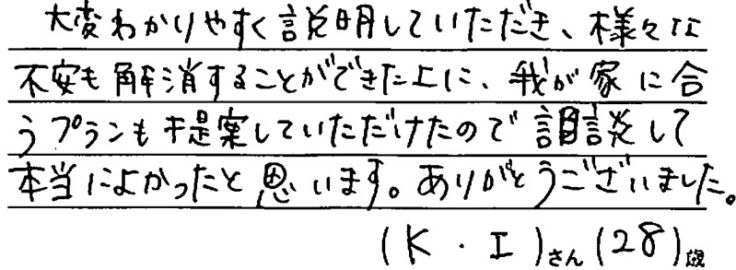 大変わかりやすく説明していただき、様々な
不安も解消することができた上に、我が家に合
うプランも提案していただけたので相談して
本当によかったと思います。ありがとうございました。
(K・I)さん(28)歳